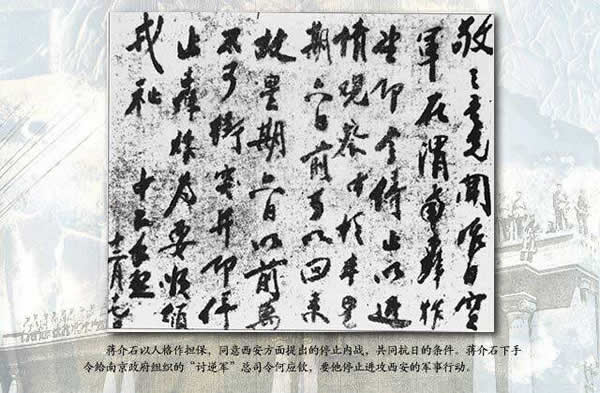 敬之吾兄聞昨日空
軍在渭南轟炸
望即令停止以近
情觀察中於本星
期六日前可以回京
故星期六日以前萬
不可衝突并即停
止轟炸為要順頌
戎祉 中正手啟
十二月十七日
蒋介石以人格作担保，同意西安方面提出的停止内战，共同抗日的条件。蒋介石下手
令给南京政府组织的“讨逆军”总司令何应钦，要他停止进攻西安的军事行动。